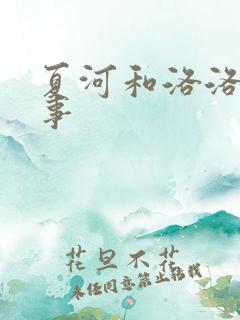 夏河和洛洛
事
花旦不花
未经同意禁止转载